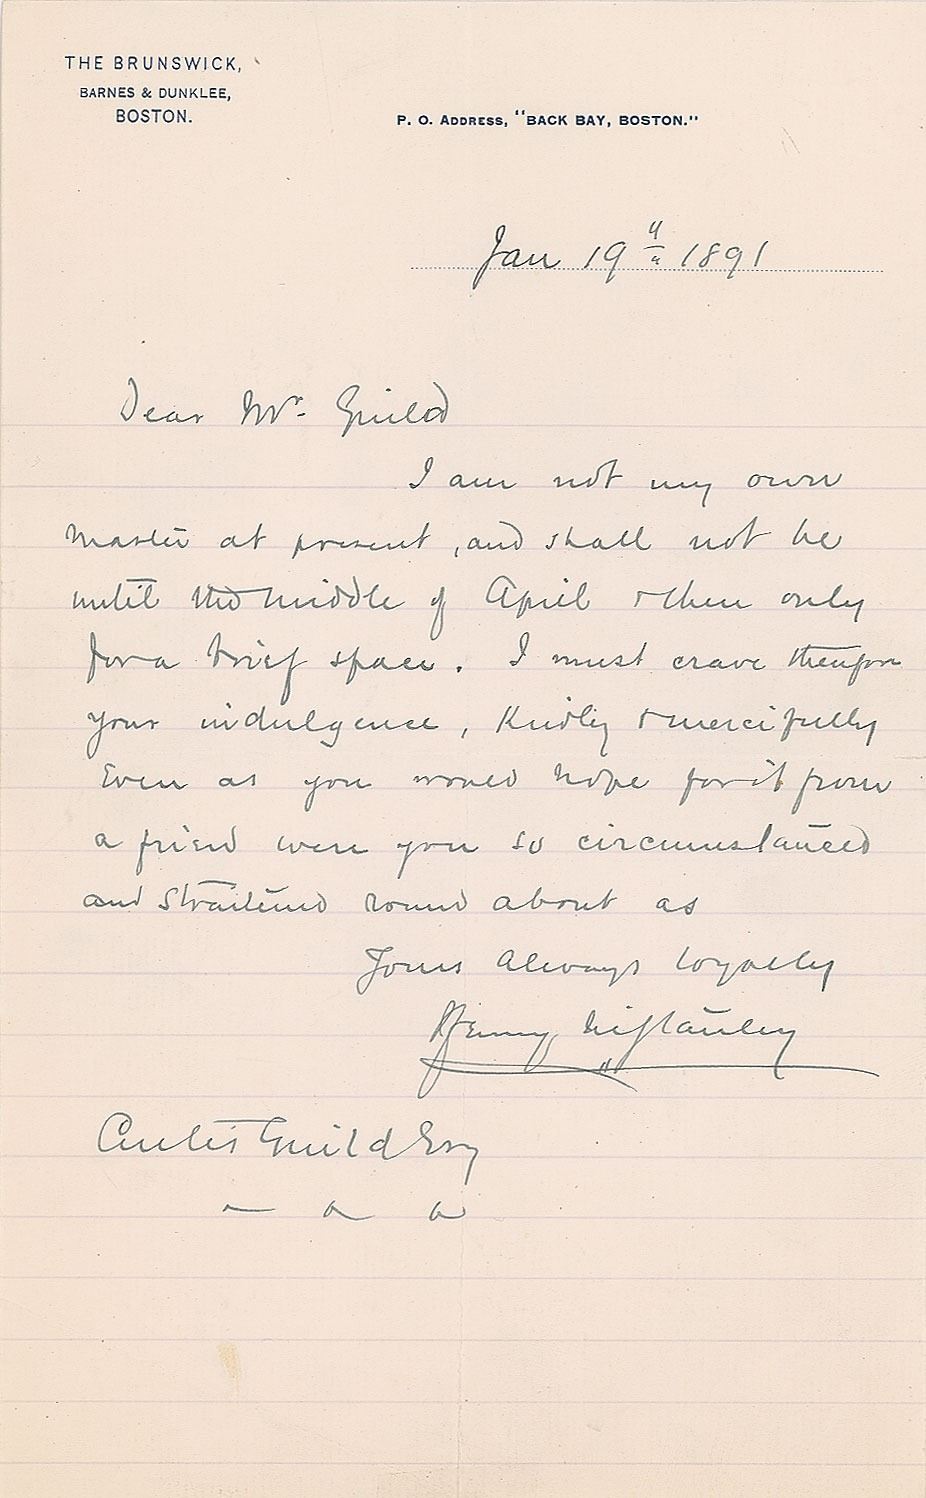 THE BRUNSWICK,
BARNES & DUNKLEE,
BOSTON.
P. O. ADDRESS, "BACK BAY, BOSTON."
Jan 19th 1891
Dear Mr. Guild
I am not my own
master at present, and shall not be
until the middle of April & then only
for a brief space. I must crave therefore
your indulgence, Kindly & mercifully
Even as you would hope for it from
a friend were you so circumstanced
and straitened round about as
Yours Always loyally
Henry M Stanley
Curtis Guild Esq